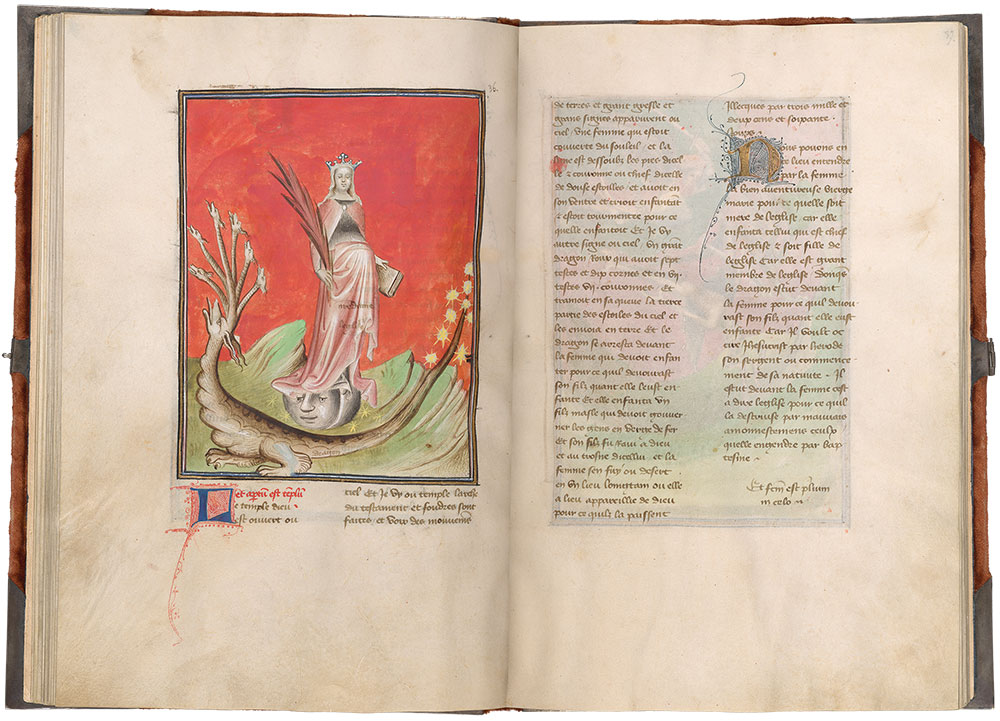 36
dragon
et apertu est templu
Le temple dieu
est ouvert ou
ciel Et Je Vy ou temple larche
du testament et foudres sont
faites et voix des mouvemens
de terres et grant gresle et
grans signes apparurent ou
ciel, Une femme qui estoit
couverte du souleil et la
lune est dessoubz les pies dicel
le couronne ou chief dicelle
de douse estoilles et avoit en
son ventre et crioit enfantat
et estoit tourmentee pour ce
quelle enfantoit Et Je Vy
autre signe ou ciel, Un grat
dragon Roux qui avoit sept
testes et dix cornes et en Vij.
testes Vij. couronnes Et
trainoit en sa queue la tierce
partie des estoiles du ciel et
les envoia en terre Et le
dragon se arresta devant
la femme qui devoit enfan
ter pour ce quil devourast
son filz quant elle leust en
fante Et elle enfanta Un
filz masle qui devoit gouver
ner les gens en verge de fer
Et son filz fu Ravi a dieu
et au trosne dicellui et la
femme sen fuy ou desert
en Un lieu lointtain ou elle
a lieu appareille de dieu
pour ce quilz la paissent
illecques par trois mille et
deux cens et soixante
Jours
Nous pouons en
ce lieu entendre
par la femme
la bien aventureuse vierge
marie pour ce quelle soit
mere de leglise car elle
enfanta cellui qui est chief
de leglise et soit fille de
leglise Car elle est grant
membre de leglise Donqs
le dragon estut devant
la femme pour ce quil devou
rast son filz quant elle eust
enfante Car Il voult oc
cire Jhesucrist par herode
son sergent ou commence
ment de sa nativite Il
estut devant la femme cest
a dire leglise pour ce quil
la destruise par mauvais
amonnestemens ceulx
quelle engendre par bap
tesme
Et fcm est prlium
in celo